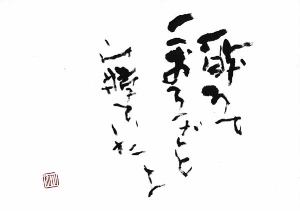 酔うて
こおろぎと
寝ていたよ